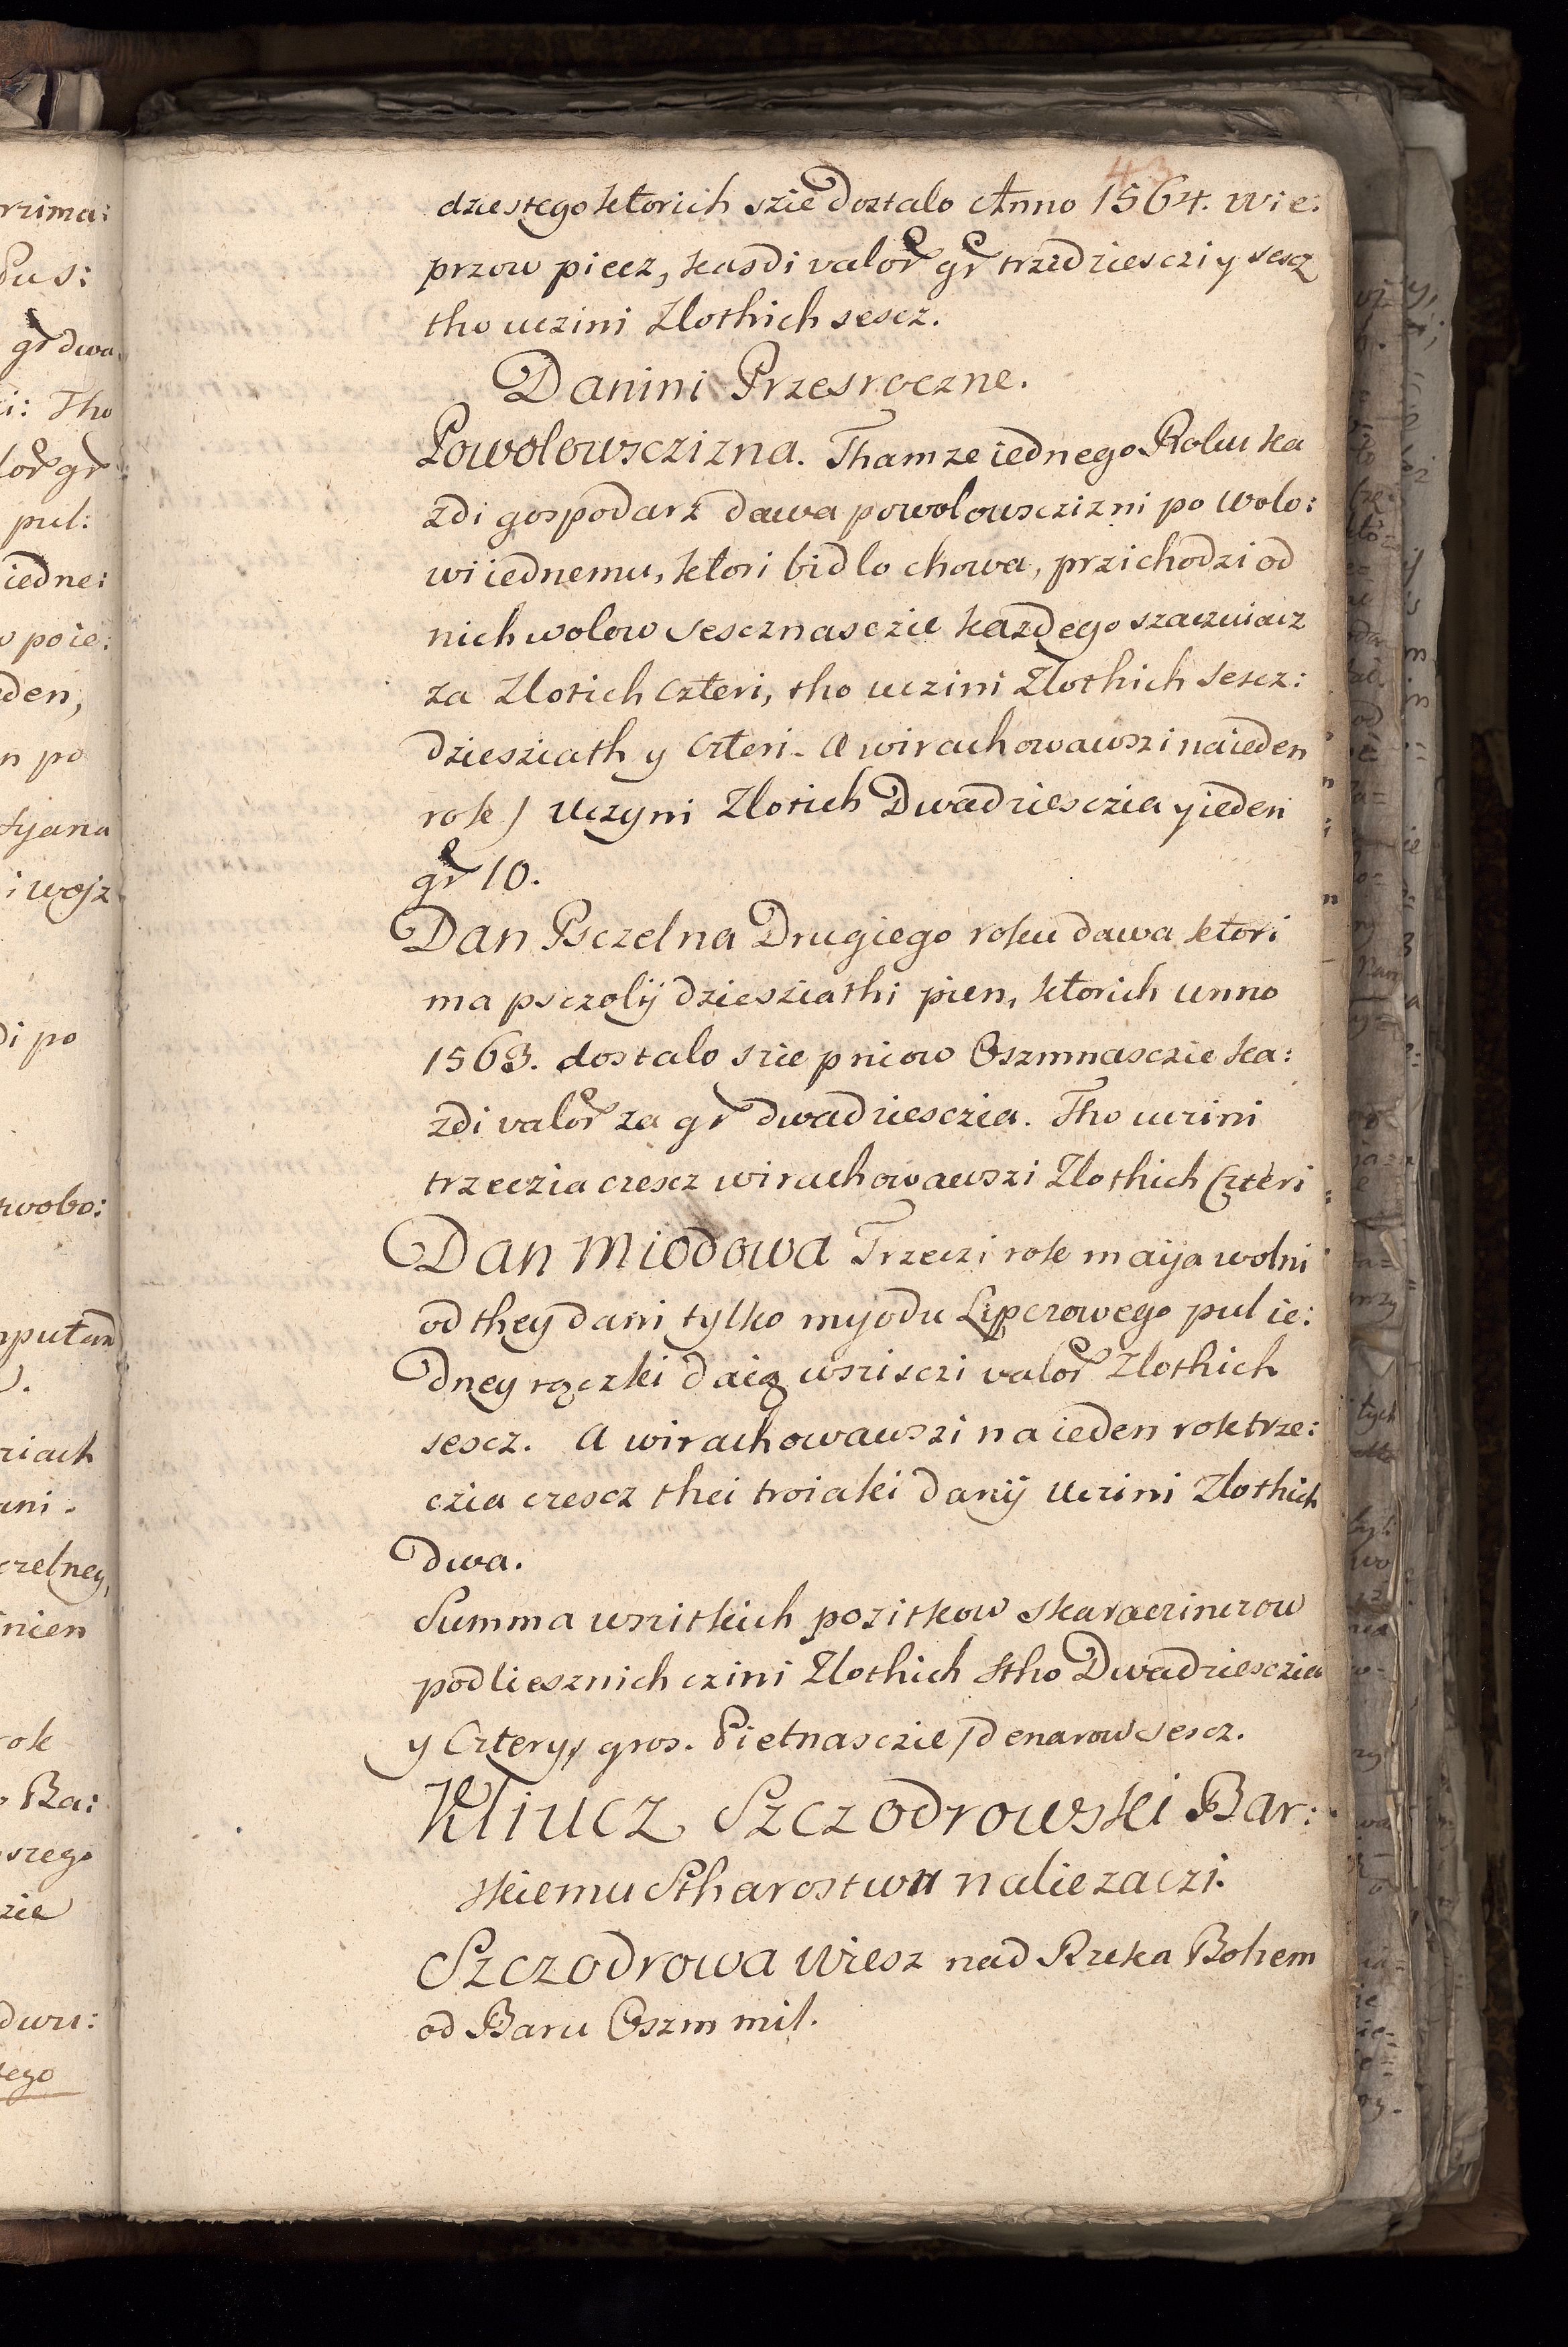 43
dziestego ktorich szie Dostalo Anno 1564. wie:
przow piecz, kasdi valor gr trzidziesczi y sescz
tho uczini Zlothich sescz.
Danini Przesroczne.
Powolowsczizna. Thamze iednego Roku ka
zdi gospodarz dawa powolowsczizni po wolo:
wi iednemu, ktori bidlo chowa, przichodzi od
nich wolow sescznasczie kazdego szaczuiacz
za Zlotich czteri, tho uczini Zlothich sescz:
dziesziath y czteri. A wirachowawszi na ieden
rok / Uczyni Zlotich Dwadziesczia y ieden
gr 10.
Dan Psczelna Drugiego roku dawa ktori
ma psczolÿ dziesziathi pien, ktorich anno
1563. dostalo szie pniow Oszmnasczie ka:
zdi valor za gr dwadziesczia. Tho uczini
trzeczia czescz wirachowawszi Zlothich Czteri
Dan Miodowa Trzeczi rok maija wolni
od they dani tylko myodu Lipczowego pul ie:
Dney rączki daią wszisczi valor Zlothich
sescz. A wirachowawszi na ieden rok trze:
czia czescz thei troiaki danÿ Uczini Zlothich
Dwa.
Summa wszitkich pozitkow skaraczinczow
podliesznich czini Zlothich Stho Dwadziesczia
y Cztery, gros. Pietnasczie / denarow sescz.
Kliucz Szczodrowski Bar:
skiemu Stharostwu naliezaczi.
Szczodrowa Wiesz nad Rzeka Bohem
od Baru Oszm mil.